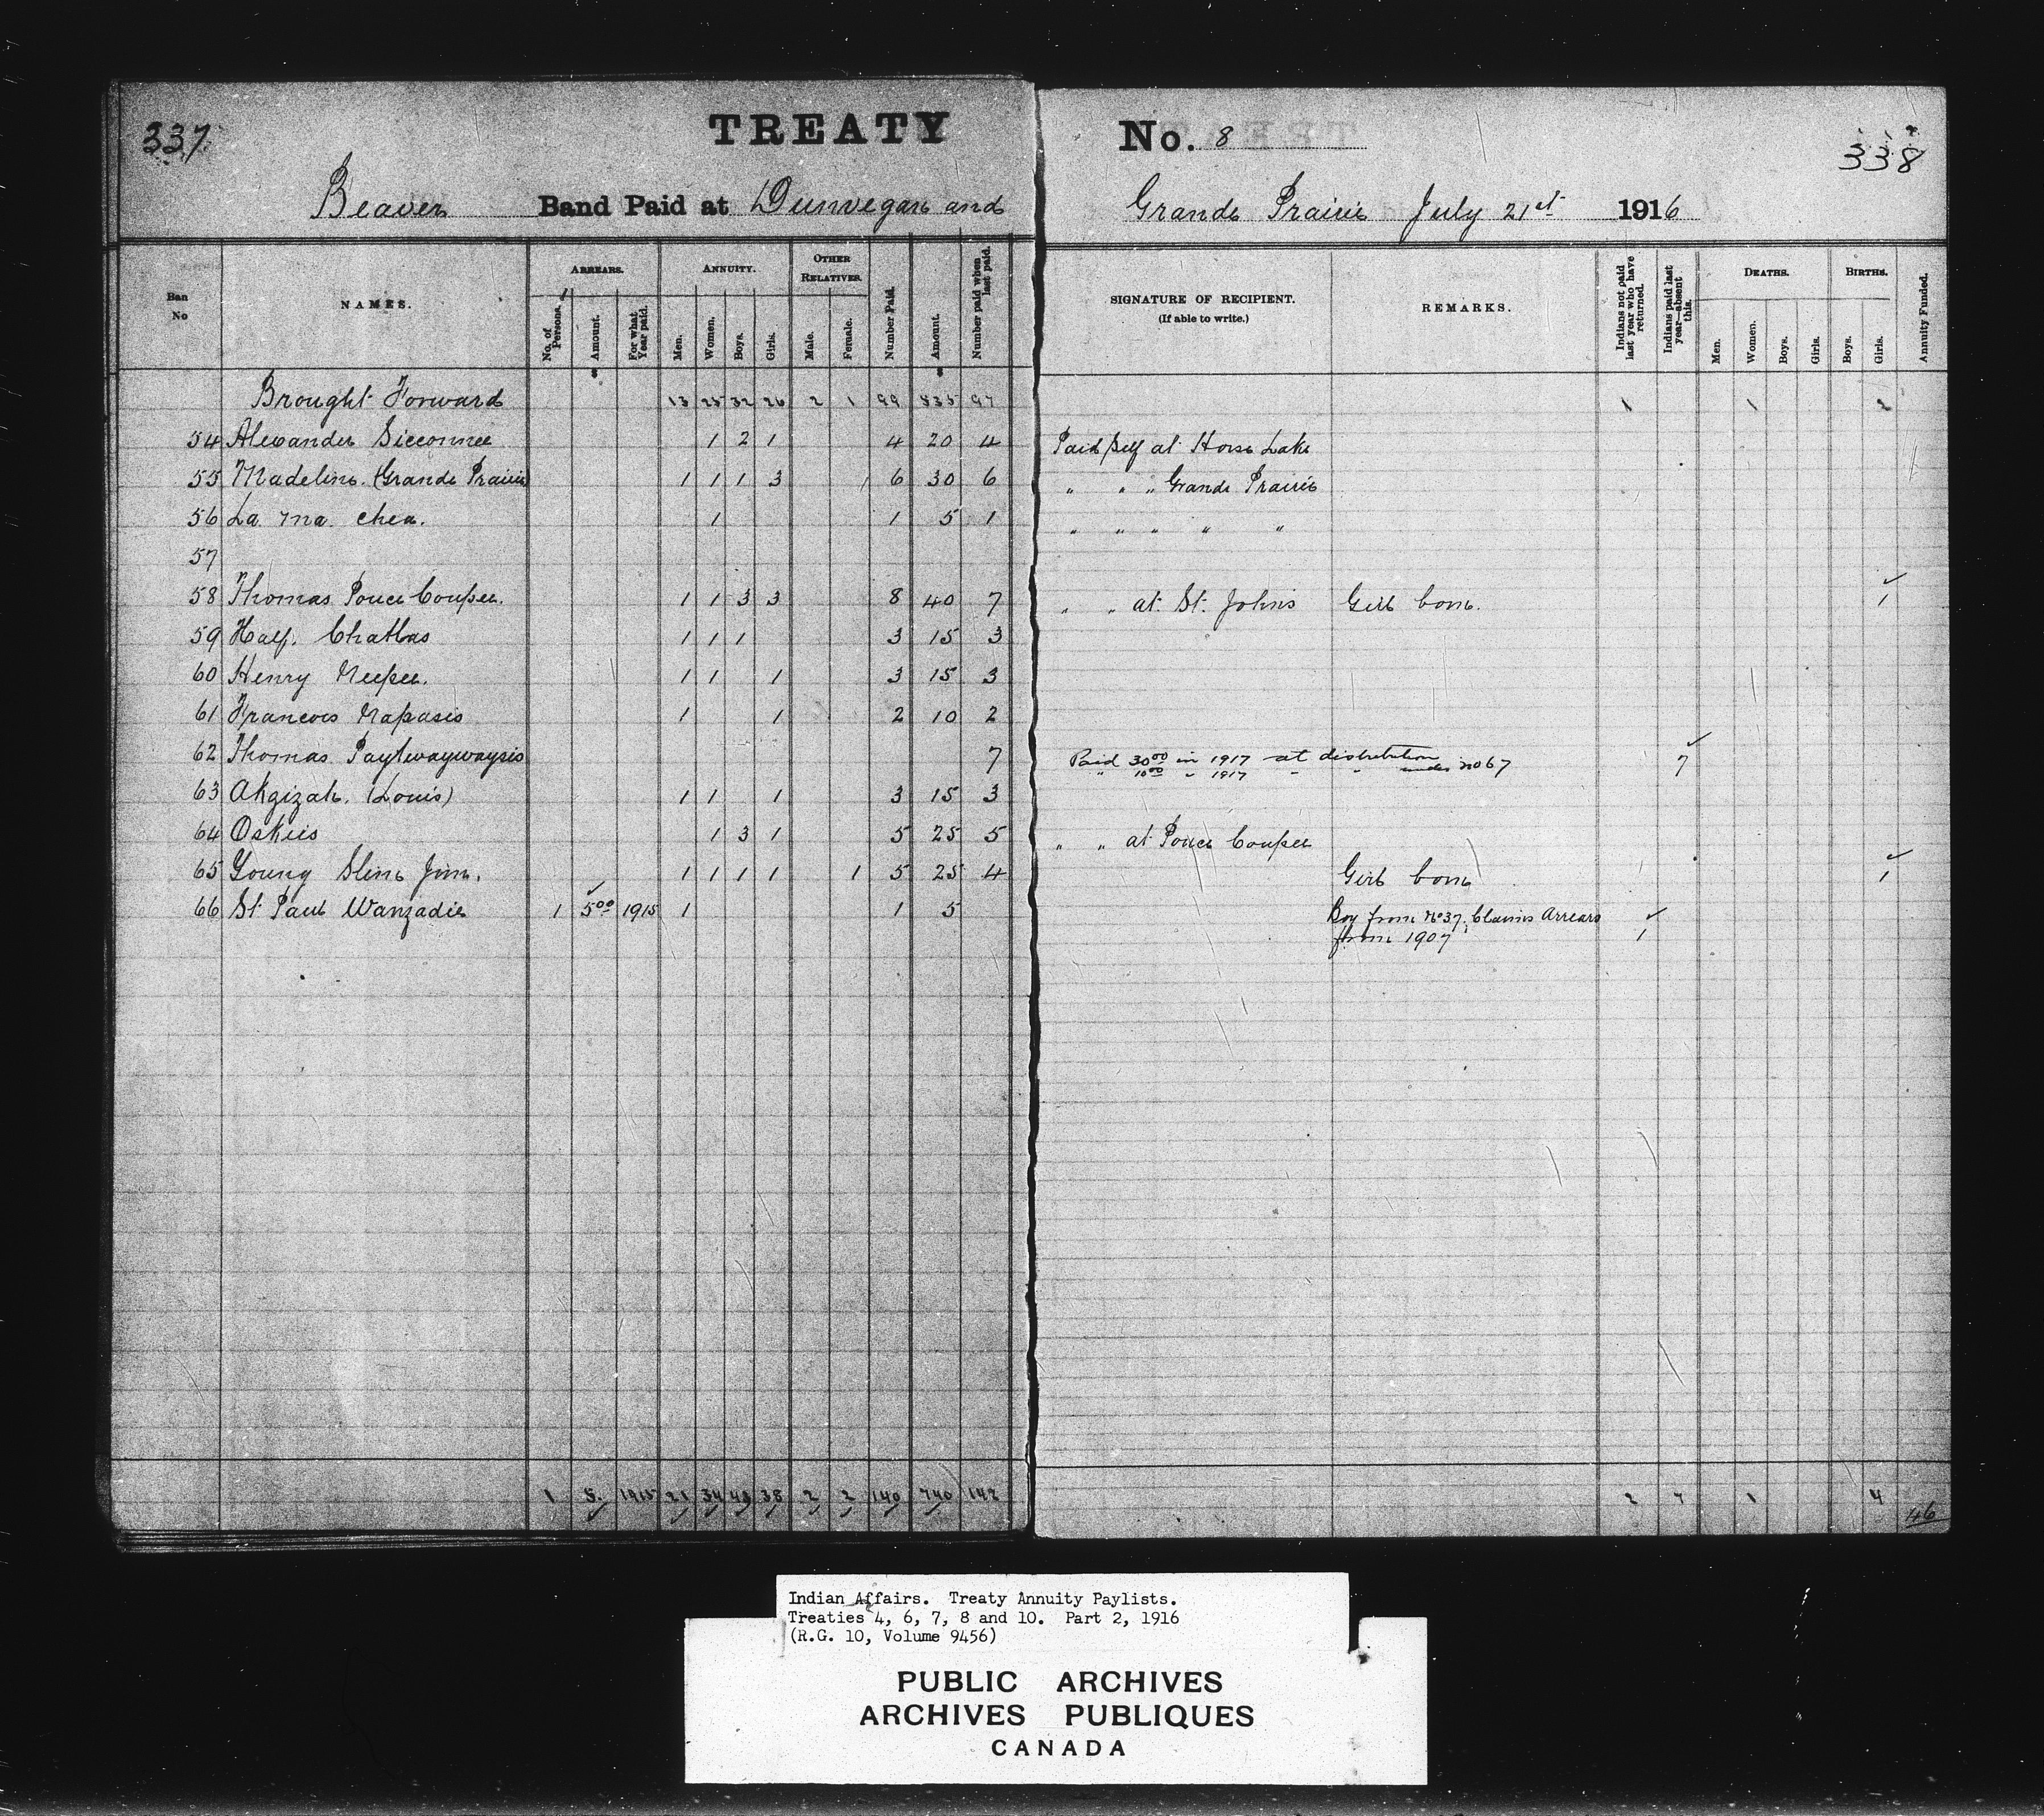 337
TREATY No. 8
338
Beaver Band Paid at Dunvegan and Grande Prairie July 21st 1916
Ban No
NAMES.
ARREARS.
No. of Persons.
Amount.
For what Year paid.
ANNUITY.
Men.
Women.
Boys.
Girls.
OTHER RELATIVES.
Male.
Female.
Number Paid.
Amount.
Number paid when last paid.
SIGNATURE OF RECIPIENT.
(If able to write.)
REMARKS.
Indians not paid last year who have returned.
Indians paid last year—absent this.
DEATHS.
Men.
Women.
Boys.
Girls.
BIRTHS.
Boys.
Girls.
Annuity Funded.
$ $
Brought Forward 13 25 32 26 2 1 99 535 97 1 1 2
54 Alexander Sicconnee 1 2 1 4 20 4 Paid Self at Horse Lake
55 Madeline. (Grande Prairie) 1 1 1 3 6 30 6 " " " Grande Prairie
56 La ma chea. 1 1 5 1 " " " " "
57
58 Thomas Pouce Coupee. 1 1 3 3 8 40 7 " " at St. Johns Girl born. ✓ 1
59 Half. Chattas 1 1 1 3 15 3
60 Henry Neepee. 1 1 1 3 15 3
61 Francois Napasis 1 1 2 10 2
62 Thomas Paytwaywaysis 7 Paid 3000 in 1917 at distribution ✓ 7
" 1000 " 1917 " " under No 67
63 Akgizah. (Louis) 1 1 1 3 15 3
64 Oskiis 1 3 1 5 25 5 " " at Pouce Coupee
65 Young Slim Jim. 1 1 1 1 1 5 25 4 Girl born ✓ 1
66 St Paul Wanzadie 1 ✓ 500 1915 1 1 5 Boy from No 37. Claims Arrears ✓
from 1907 1
1 5. 1915 21 34 43 38 2 2 140 740 142 2 7 1 4
46
Indian Affairs. Treaty Annuity Paylists.
Treaties 4, 6, 7, 8 and 10. Part 2, 1916
(R.G. 10, Volume 9456)
PUBLIC ARCHIVES
ARCHIVES PUBLIQUES
CANADA